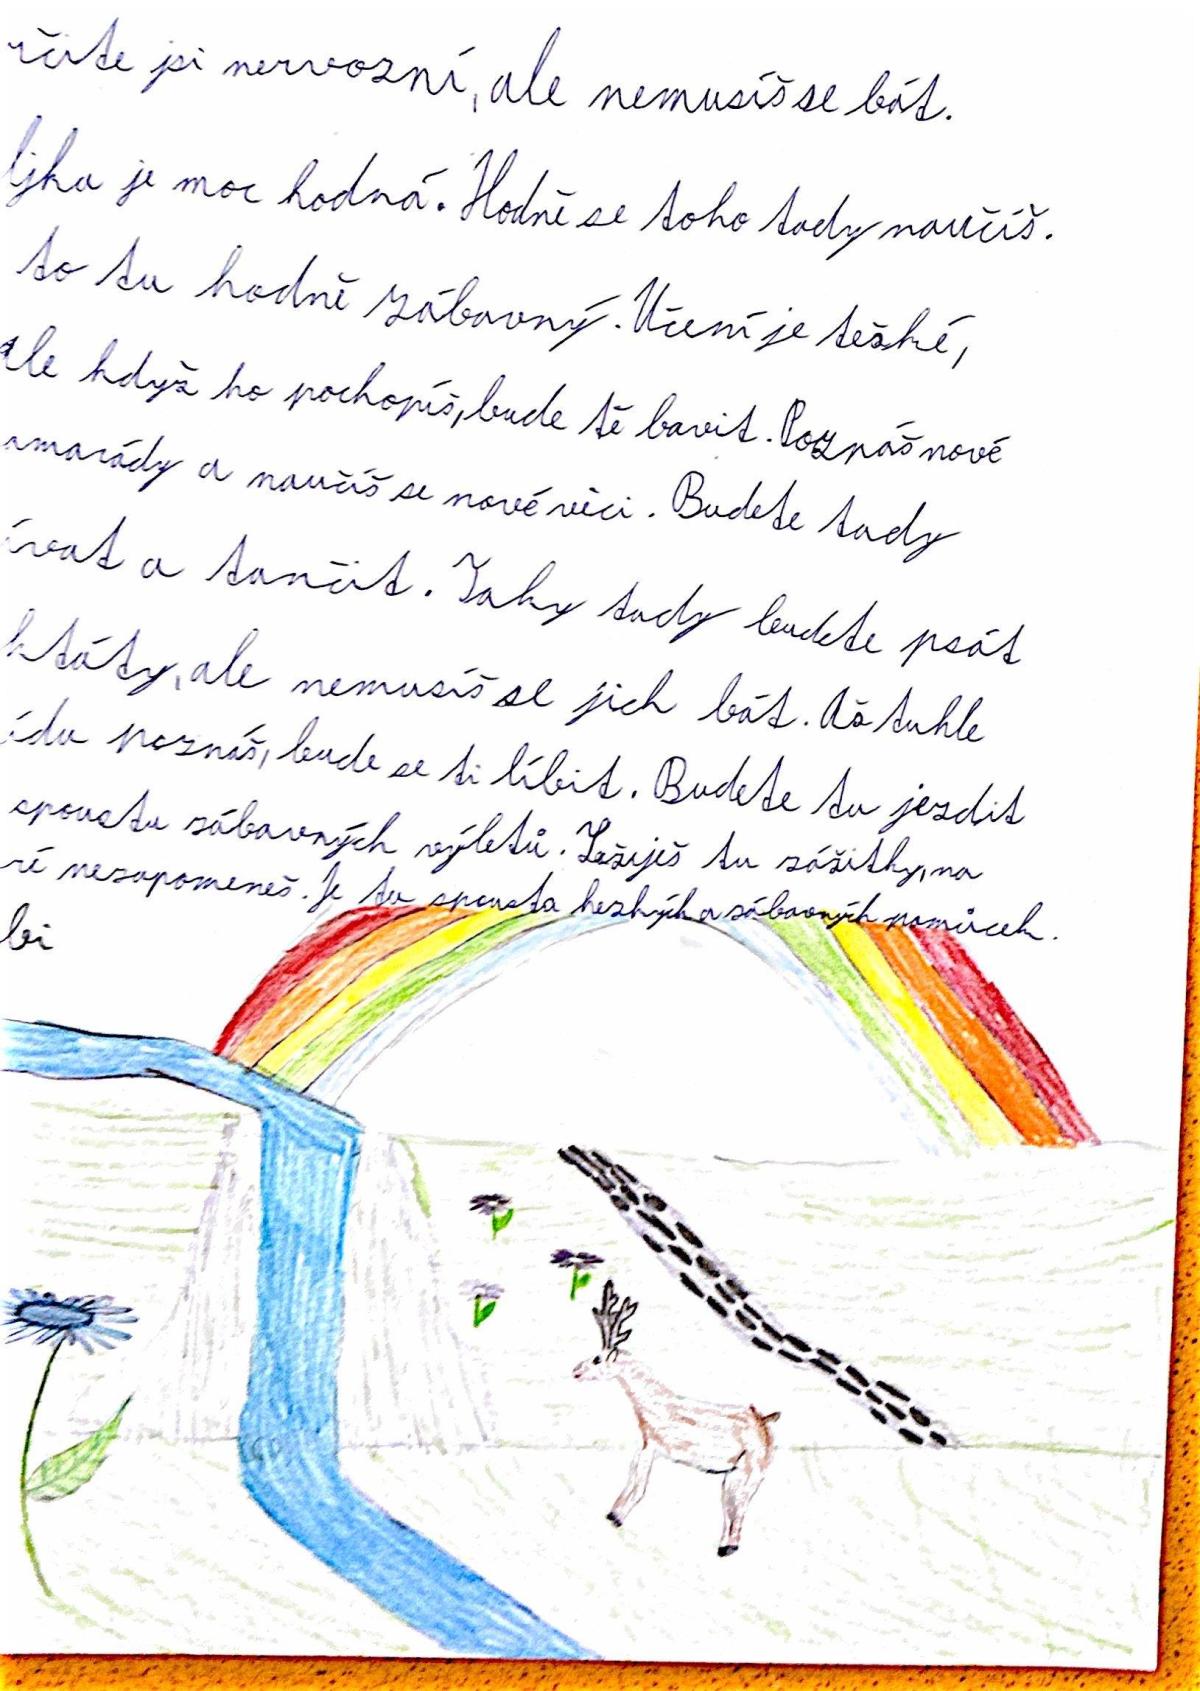 rčite jsi nervozní, ale nemusíš se bát.
ljka je moc hodná. Hodně se toho tady naučíš.
to tu hodně zábavný. Učení je težké,
ale když ho pochopíš, bude tě bavit. Poznáš nové
amarády a naučíš se nové věci. Budete tady
ívat a tančit. Taky tady budete psát
ktáty, ale nemusíš se jich bát. Až tuhle
ídu poznáš, bude se ti líbit. Budete tu jezdit
spoustu zábavných výletů. Zažiješ tu zážitky, na
ré nezapomeneš. Je tu spousta hezkých a zábavných pomůcek.
bi